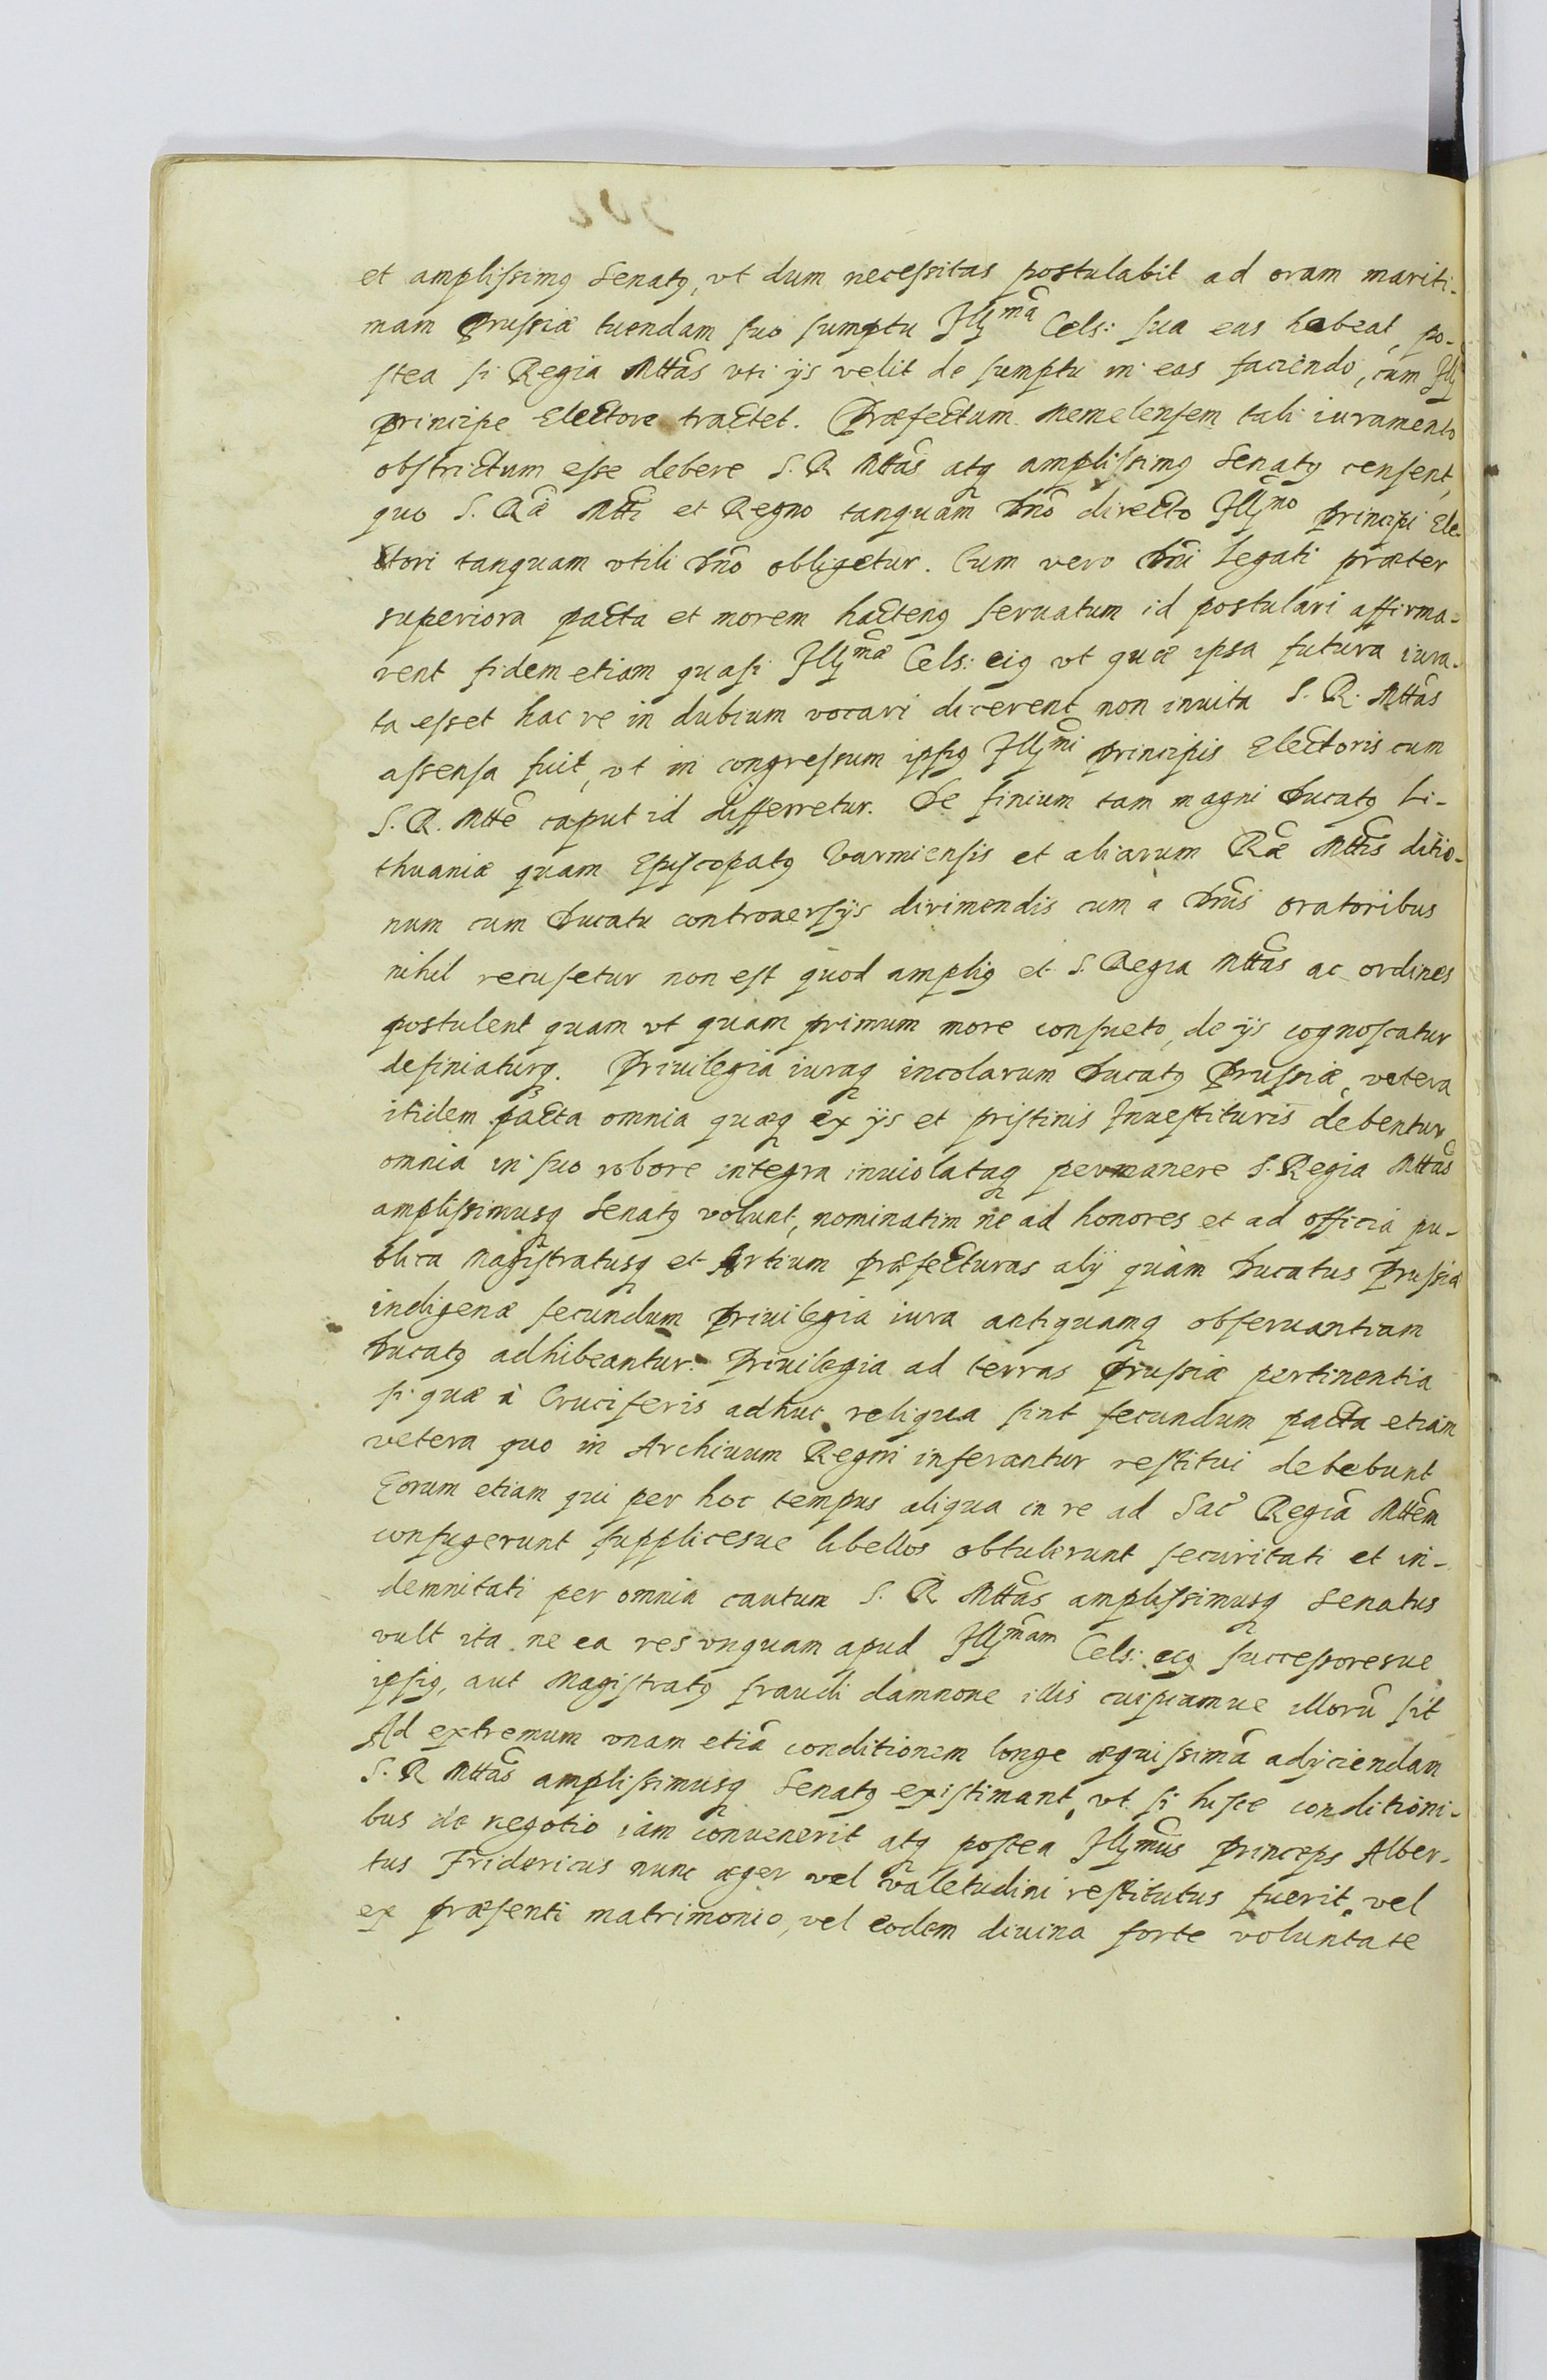 et amplissimꝰ Senatꝰ, vt dum necessitas postulabit ad oram mariti-
mam Prussiæ tuendam suo sumptu Illma Cels: sua eas habeat, po-
stea si Regia Mttas vti ijs velit de sumptu in eas faciendo, cum Ill
principe Electore tractet. Præfectum Memelensem tali iuramento
obstrictum esse debere S. R Mttas atq amplissimꝰ Senatꝰ censent,
quo S. Ræ Mtti et Regno tanquam Dno directo Illmno principi Ele-
ctori tanquam vtili Dno obligetur. Cum vero Dni Legati præter
superiora pacta et morem hactenꝰ seruatum id postulari affirma-
rent fidem etiam quasi Illmæ Cels: eiꝰ vt quæ ipsa futura iura-
ta esset hac re in dubium vocari dicerent non inuita S. R. Mttas
assensa fuit, vt in congressum ipsiꝰ Illmi principis Electoris cum
S. R. Mtte caput id differretur. De finium tam magni Ducatꝰ Li-
thuaniæ quam Episcopatꝰ Varmiensis et aliarum Ræ Mttis ditio-
num cum Ducatu controuersijs dirimendis cum a Dnis oratoribus
nihil recusetur non est quod ampliꝰ et S. Regia Mttas ac ordines
postulent quam vt quam primum more consueto, de ijs cognoscatur
definiaturq. Priuilegia iuraq incolarum Ducatꝰ Prussiæ, vetera
itidem pacta omnia quæq ex ijs et pristinis Inuestituris debentur
omnia in suo robore integra inuiolataq permanere S. Regia Mttas
amplissimusq Senatꝰ volunt, nominatim ne ad honores et ad officia pu-
blica Magistratusq et Artium præfecturas alij quàm Ducatus Prussiæ
indigenæ secundum priuilegia iura antiquamq obseruantiam
Ducatꝰ adhibeantur. Priuilegia ad terras Prussiæ pertinentia
si quæ à Cruciferis adhuc reliqua sint secundum pacta etiam
vetera quo in Archiuum Regni inferantur restitui debebunt
Eorum etiam qui per hoc tempus aliqua in re ad Sac Regia Mttem
confugerunt supplicesue libellos obtulerunt securitati et in-
demnitati per omnia cautum S. R Mttas amplissimusq Senatus
vult ita ne ea res vnquam apud Illmam Cels: eiꝰ successoresue
ipsiꝰ, aut Magistratꝰ fraudi damnone illis cuipiamue illorũ sit
Ad extremum vnam etiã conditionem longe æquissimã adijciendam
S. R Mttas amplissimusq Senatꝰ existimant, vt si hisce conditioni-
bus de negotio iam conuenerit atq postea Illmus Princeps Alber-
tus Fridericus nunc æger vel valetudini restitutus fuerit, vel
ex præsenti matrimonio, vel eodem diuina forte voluntate